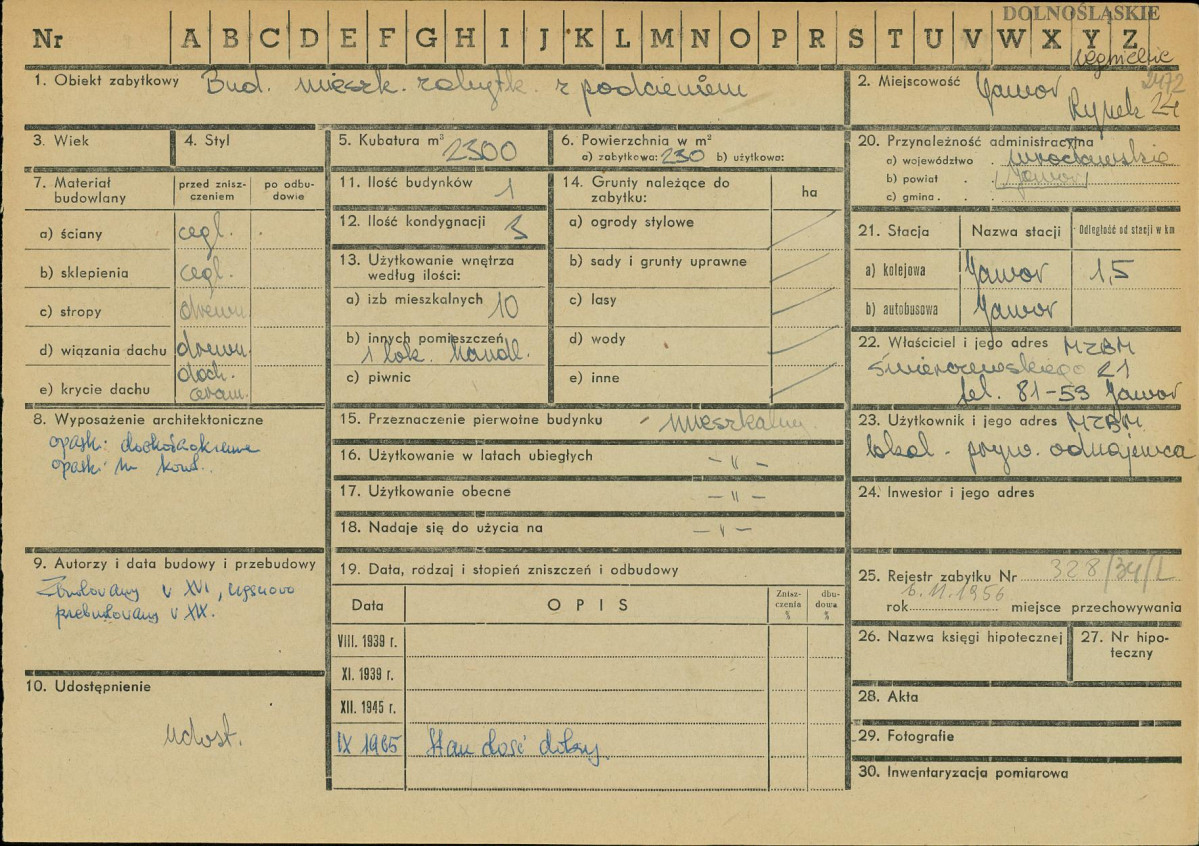 DOLNOŚLĄSKIE
Nr A B C D E F G H I J K L M N O P R S T U V W X Y Z
legnickie
1. Obiekt zabytkowy Bud. mieszk. zabytk. z podcieniem
2. Miejscowość Jawor
2472
Rynek 24
3. Wiek
4. Styl
5. Kubatura m³ 2300
6. Powierzchnia w m²
a) zabytkowa: 230 b) użytkowa:
20. Przynależność administracyjna
a) województwo wrocławskie
b) powiat Jawor
c) gmina
7. Materiał budowlany
przed zniszczeniem
po odbudowie
a) ściany cegl.
b) sklepienia cegl.
c) stropy drewn.
d) wiązania dachu drewn.
e) krycie dachu dach. ceram.
11. Ilość budynków 1
12. Ilość kondygnacji 3
13. Użytkowanie wnętrza
według ilości:
a) izb mieszkalnych 10
b) innych pomieszczeń
1 lok. handl.
c) piwnic
14. Grunty należące do
zabytku:
ha
a) ogrody stylowe
b) sady i grunty uprawne
c) lasy
d) wody
e) inne
21. Stacja Nazwa stacji Odległość od stacji w km
a) kolejowa Jawor 1,5
b) autobusowa Jawor
22. Właściciel i jego adres MZBM
Świerczewskiego 21
tel. 81-53 Jawor
8. Wyposażenie architektoniczne
opaski dookoła okienne
opaski
15. Przeznaczenie pierwotne budynku - mieszkalny
16. Użytkowanie w latach ubiegłych - " -
17. Użytkowanie obecne - " -
18. Nadaje się do użycia na - " -
23. Użytkownik i jego adres MZBM
lokal. pryw. odnajemca
24. Inwestor i jego adres
9. Autorzy i data budowy i przebudowy
Zbudowany w XVI, częściowo
przebudowany w XIX.
19. Data, rodzaj i stopień zniszczeń i odbudowy
Data OPIS Zniszczenia % dbudowa %
VIII. 1939 r.
XI. 1939 r.
XII. 1945 r.
IX 1965 Stan dość dobry
25. Rejestr zabytku Nr 328/34/L
6.11.1956
rok miejsce przechowywania
26. Nazwa księgi hipotecznej
27. Nr hipoteczny
10. Udostępnienie
udost.
28. Akta
29. Fotografie
30. Inwentaryzacja pomiarowa